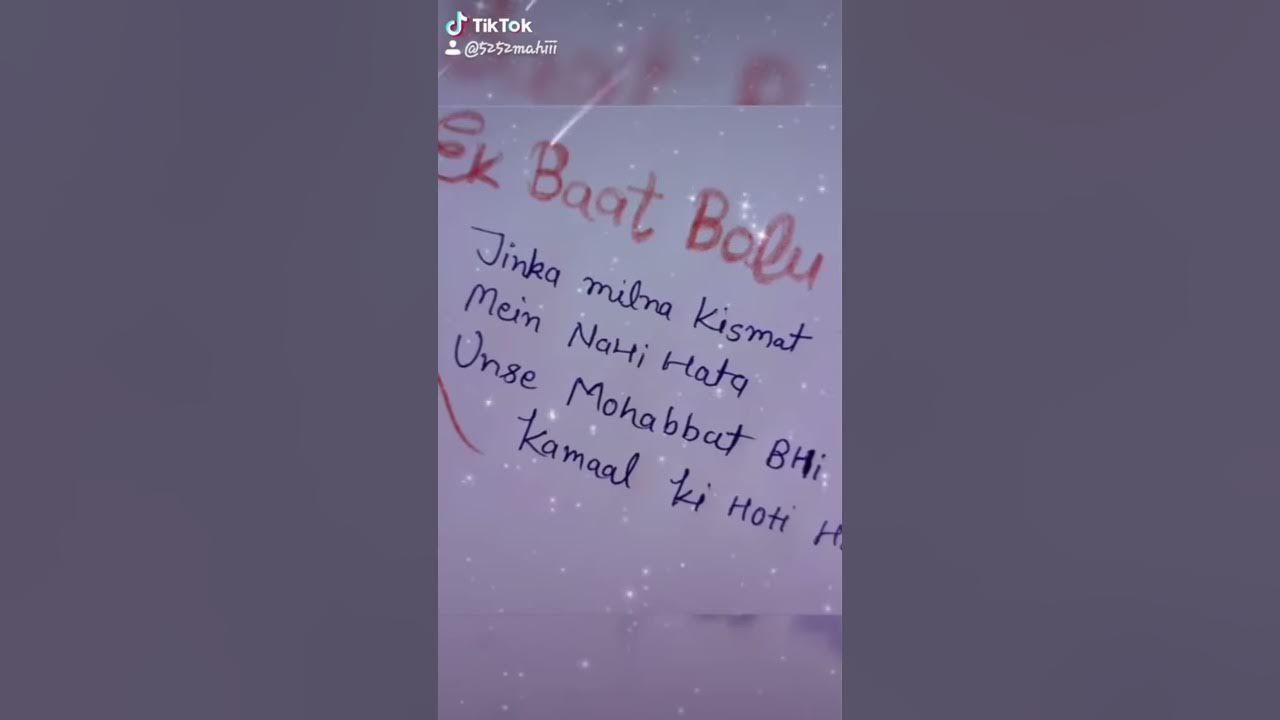 TikTok
@5252mahiii
Ek Baat Bolu
Jinka milna Kismat
Mein NaHi Hata
Unse Mohabbat BHi
Kamaal Ki Hoti